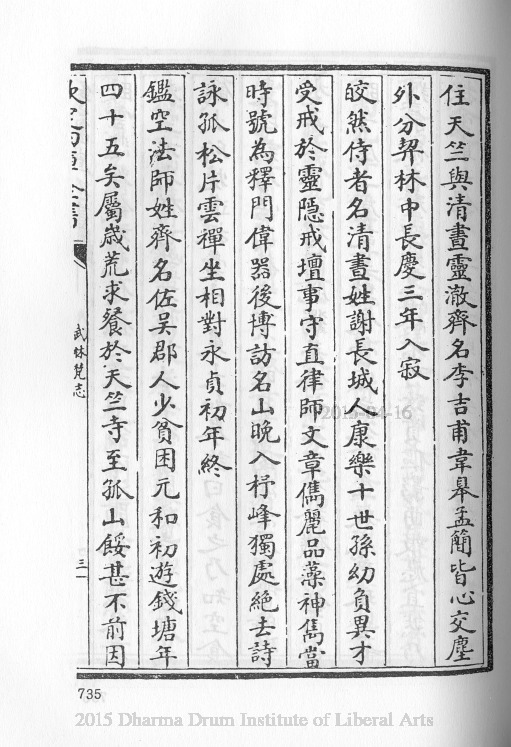 住天竺與清晝靈澈齊名李吉甫韋臯孟簡皆心交塵
外分契林中長慶三年入寂
皎然侍者名清晝姓謝長城人康樂十世孫幼負異才
受戒於靈隐戒壇事守直律師文章儁麗品藻神雋當
時號為釋門偉器後博訪名山晚入杼峰獨處絶去詩
詠孤松片雲禪坐相對永貞初年終
鑑空法師姓齊名佐吳郡人少貧困元和初遊錢塘年
四十五矣屬歲荒求餐於天竺寺至孤山餒甚不前因
武林梵志
三一
2015-04-16
735
2015 Dharma Drum Institute of Liberal Arts